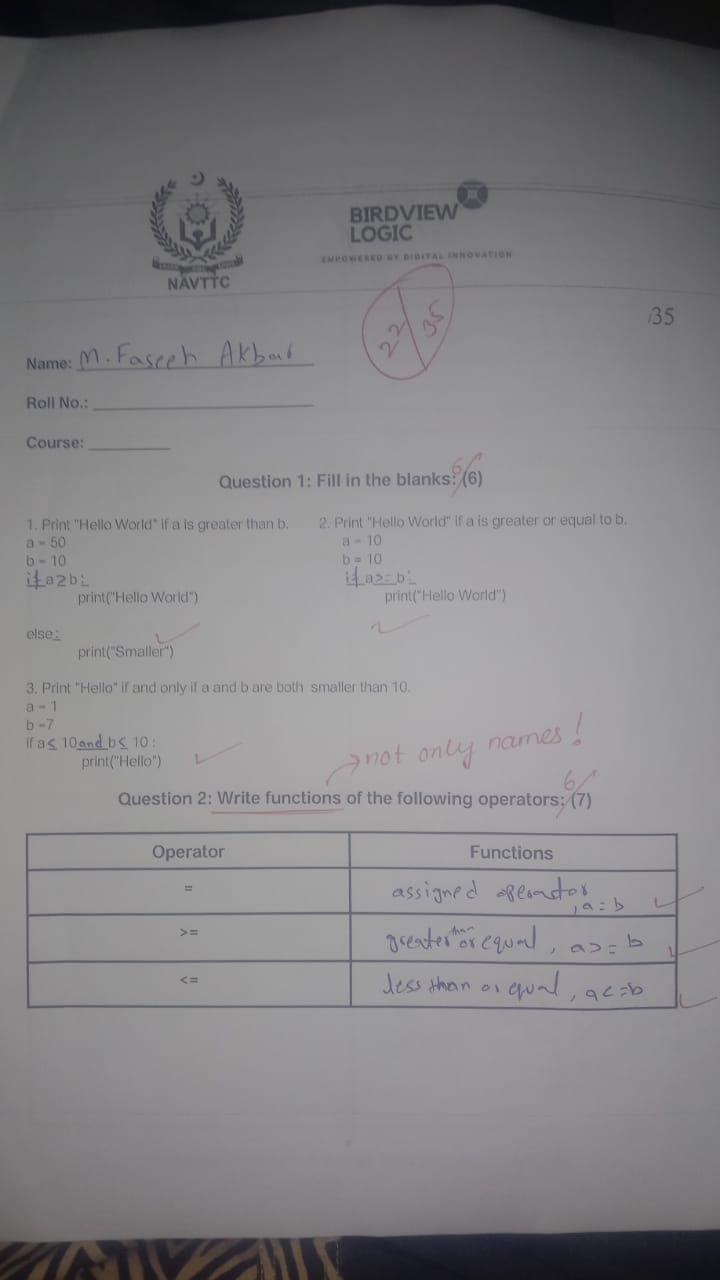 BIRDVIEW
LOGIC
EMPOWERED BY DIGITAL INNOVATION
NAVTTC
22/35
/35
Name: M. Faseeh Akbar
Roll No.:
Course:
Question 1: Fill in the blanks: (6)
6/
1. Print "Hello World" if a is greater than b.
a = 50
b = 10
if a>b:
print("Hello World")
else:
print("Smaller")
2. Print "Hello World" if a is greater or equal to b.
a = 10
b = 10
if a>=b:
print("Hello World")
3. Print "Hello" if and only if a and b are both smaller than 10.
a = 1
b =7
if a≤ 10 and b≤ 10 :
print("Hello")
→not only names!
Question 2: Write functions of the following operators: (7)
6/
Operator Functions
= assigned operator, a=b
>= greater than or equal, a>=b
<= less than or equal, a<=b